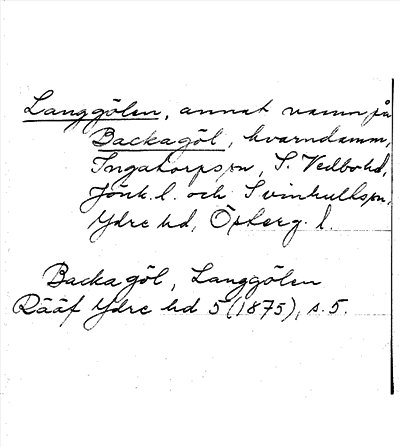 Langgölen, annat namn på
Backagöl, kvarndamm,
Ingatorps sn, S. Vedbo hd,
Jönk. l. och Svinhults sn,
Ydre hd, Österg. l.
Backagöl, Langgölen
Rääf Ydre hd 5 (1875), s. 5.